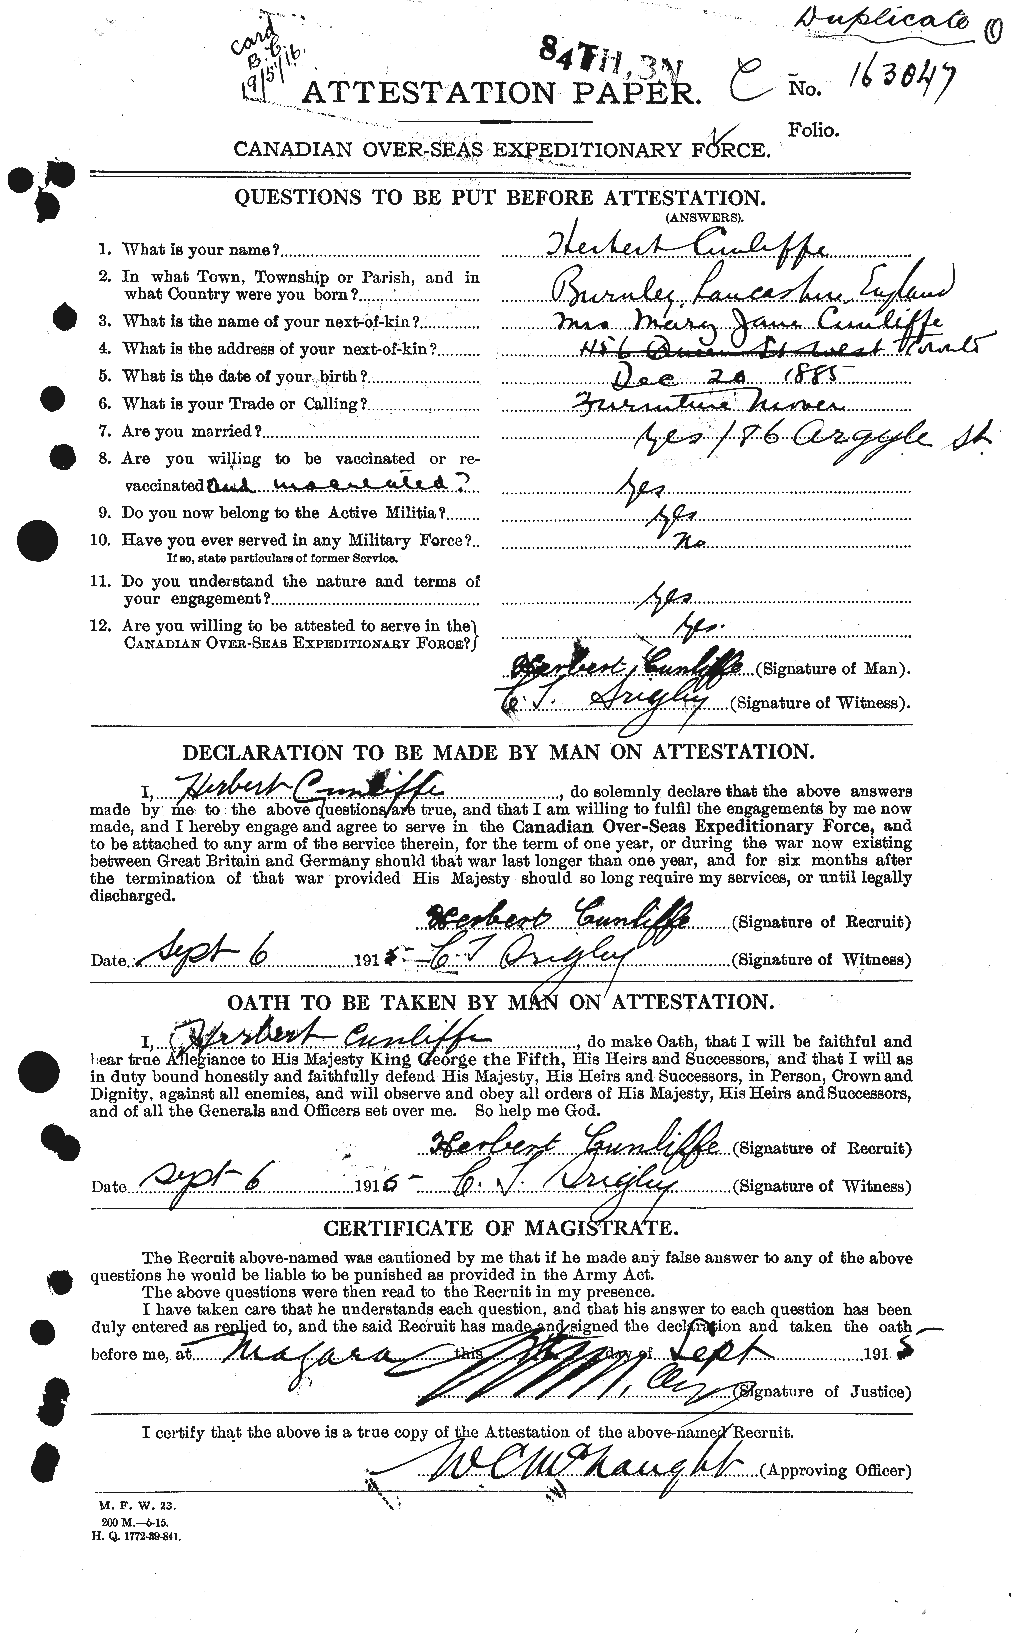 Duplicate
Card
B.C.
19/5/16.
84TH, BN
ATTESTATION PAPER.
C
No. 163047
Folio.
CANADIAN OVER-SEAS EXPEDITIONARY FORCE.
QUESTIONS TO BE PUT BEFORE ATTESTATION.
(ANSWERS).
1. What is your name? Herbert Cunliffe
2. In what Town, Township or Parish, and in
what Country were you born? Burnley, Lancashire, England
3. What is the name of your next-of-kin? Mrs Mary Jane Cunliffe
4. What is the address of your next-of-kin? 456 Queen St West Toronto
5. What is the date of your birth? Dec 20 1885
6. What is your Trade or Calling? Furniture Mover
7. Are you married? Yes / 86 Argyle St.
8. Are you willing to be vaccinated or re-
vaccinated and inoculated? Yes
9. Do you now belong to the Active Militia? Yes
10. Have you ever served in any Military Force? No
If so, state particulars of former Service.
11. Do you understand the nature and terms of
your engagement? Yes
12. Are you willing to be attested to serve in the
CANADIAN OVER-SEAS EXPEDITIONARY FORCE? Yes.
Herbert Cunliffe (Signature of Man).
C. T. Srigley (Signature of Witness).
DECLARATION TO BE MADE BY MAN ON ATTESTATION.
I, Herbert Cunliffe, do solemnly declare that the above answers
made by me to the above questions are true, and that I am willing to fulfil the engagements by me now
made, and I hereby engage and agree to serve in the Canadian Over-Seas Expeditionary Force, and
to be attached to any arm of the service therein, for the term of one year, or during the war now existing
between Great Britain and Germany should that war last longer than one year, and for six months after
the termination of that war provided His Majesty should so long require my services, or until legally
discharged.
Herbert Cunliffe (Signature of Recruit)
Date Sept 6 1915 C. T. Srigley (Signature of Witness)
OATH TO BE TAKEN BY MAN ON ATTESTATION.
I, Herbert Cunliffe, do make Oath, that I will be faithful and
bear true Allegiance to His Majesty King George the Fifth, His Heirs and Successors, and that I will as
in duty bound honestly and faithfully defend His Majesty, His Heirs and Successors, in Person, Crown and
Dignity, against all enemies, and will observe and obey all orders of His Majesty, His Heirs and Successors,
and of all the Generals and Officers set over me. So help me God.
Herbert Cunliffe (Signature of Recruit)
Date Sept 6 1915 C. T. Srigley (Signature of Witness)
CERTIFICATE OF MAGISTRATE.
The Recruit above-named was cautioned by me that if he made any false answer to any of the above
questions he would be liable to be punished as provided in the Army Act.
The above questions were then read to the Recruit in my presence.
I have taken care that he understands each question, and that his answer to each question has been
duly entered as replied to, and the said Recruit has made and signed the declaration and taken the oath
before me, at Niagara this day of Sept 1915
(Signature of Justice)
I certify that the above is a true copy of the Attestation of the above-named Recruit.
(Approving Officer)
M. F. W. 23.
200 M.—6-15.
H. Q. 1772-39-841.